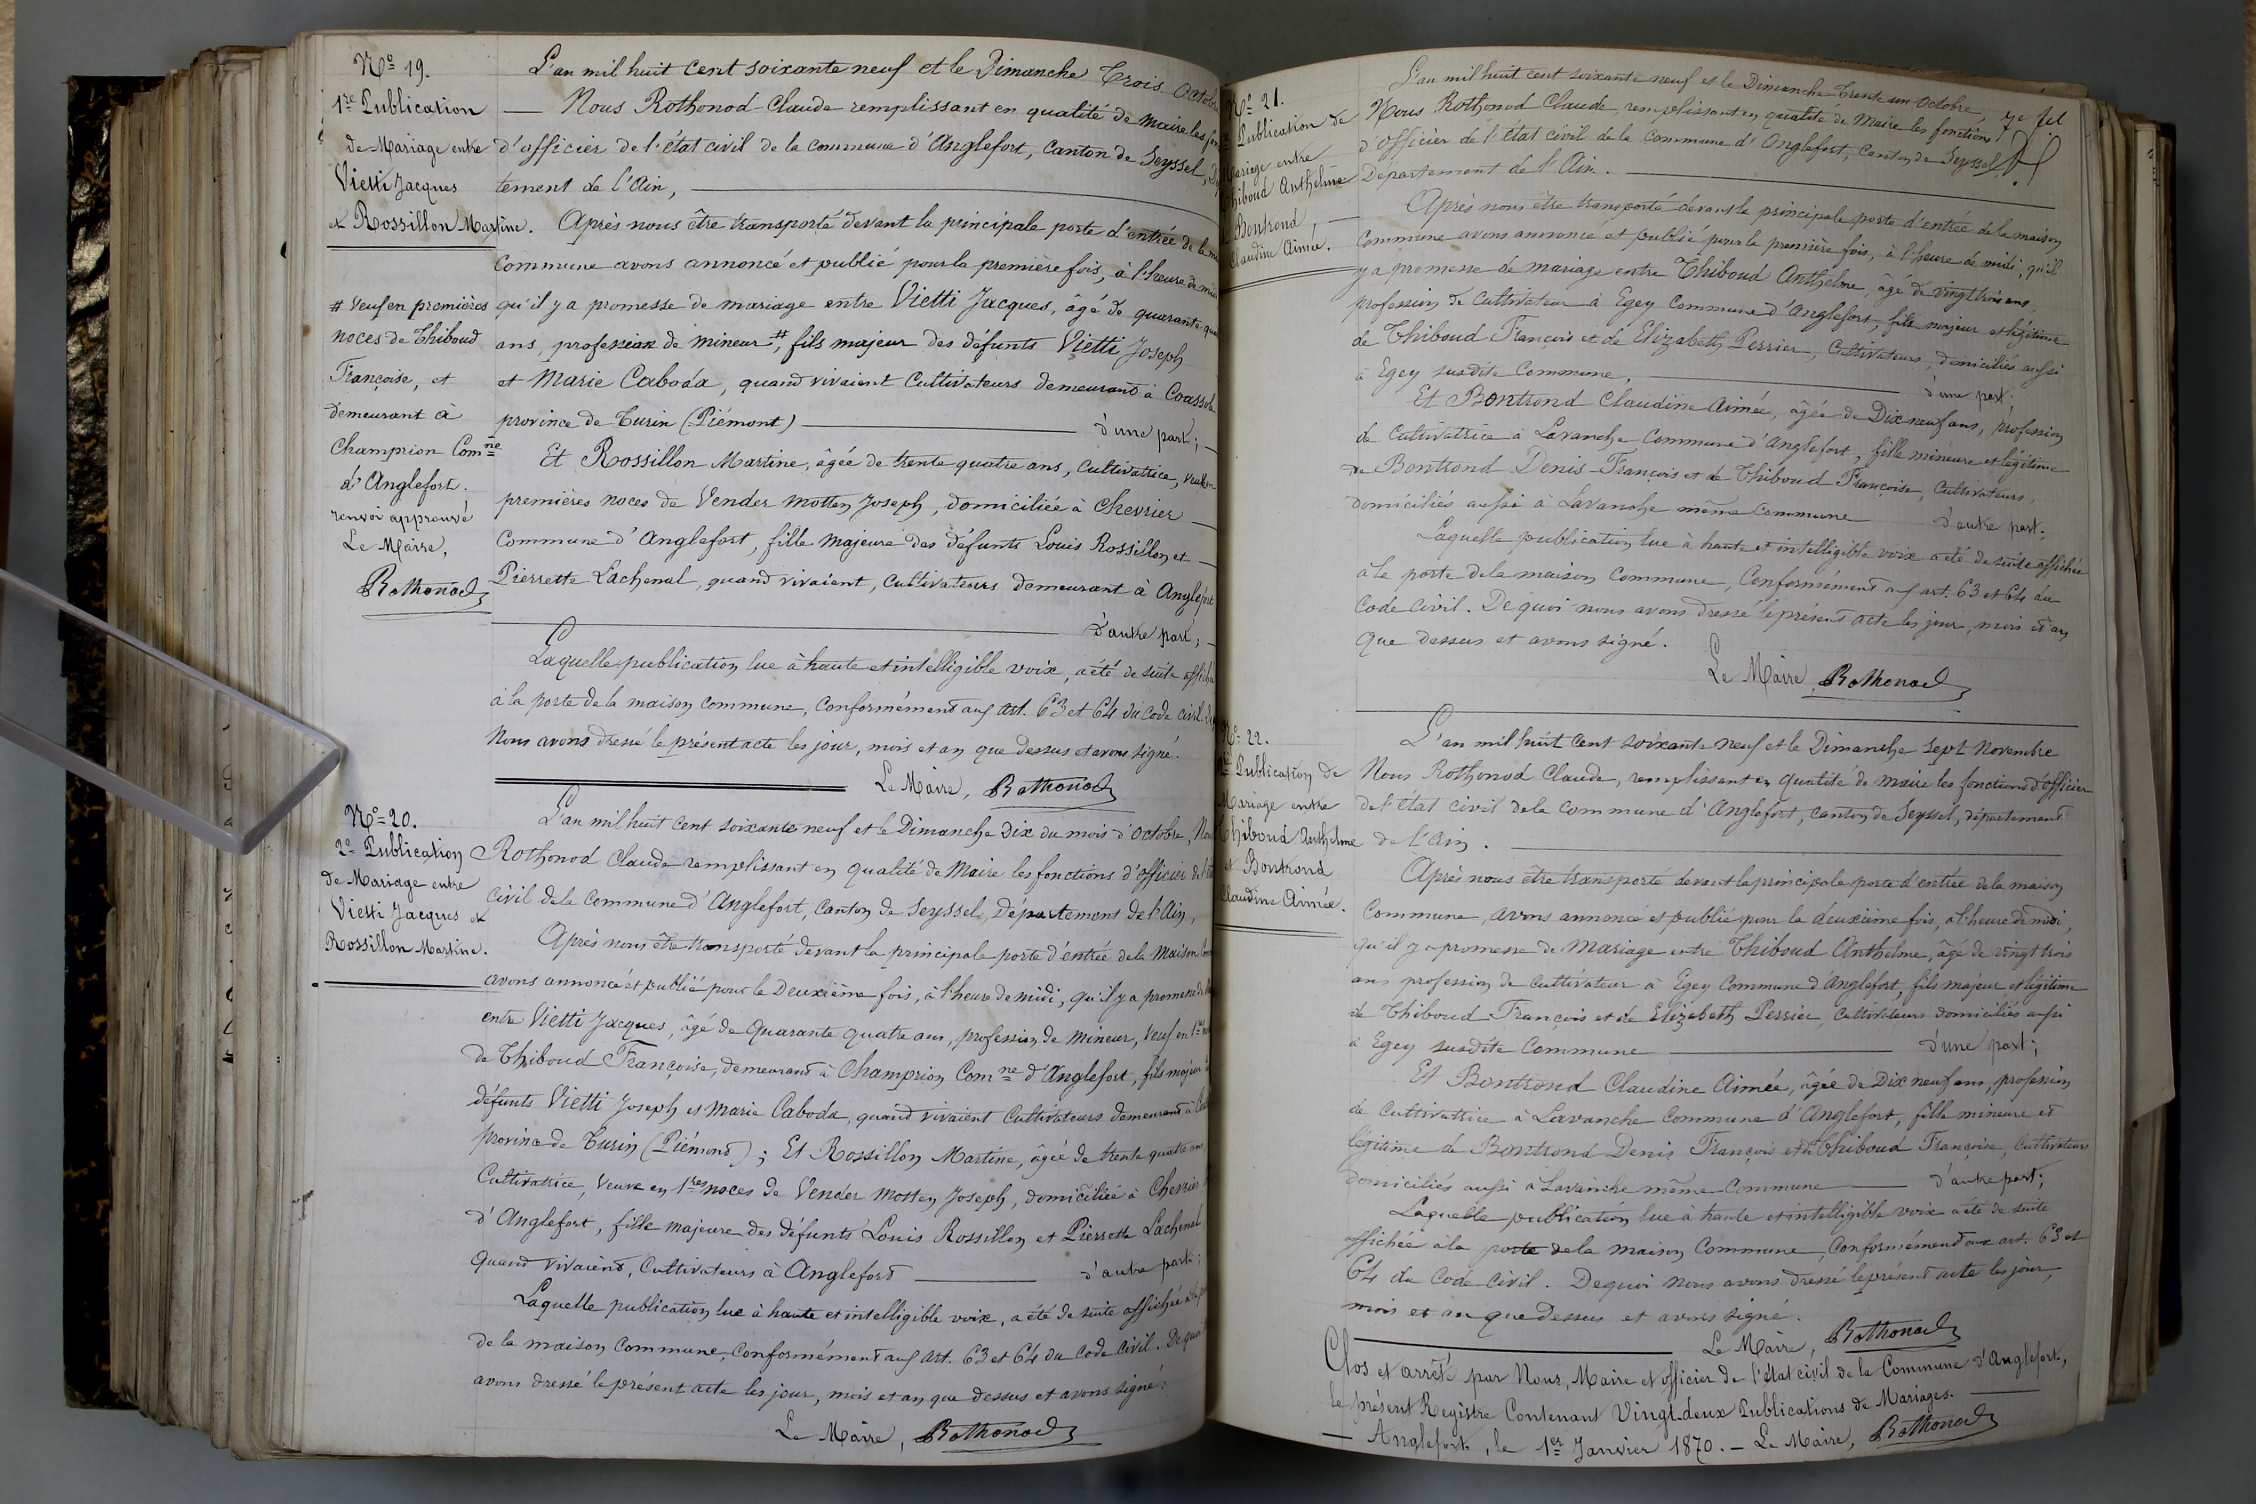 Nº 19.
1re Publication
de Mariage entre
Vietti Jacques
et Rossillon Martine.
# Veuf en premières
noces de Thiboud
Françoise, et
demeurant à
Champrion Comne
d'Anglefort.
renvoi approuvé
Le Maire,
Rothonod
L'an mil huit cent soixante neuf et le Dimanche Trois Octobre
Nous Rothonod Claude remplissant en qualité de Maire les
d'officier de l'état civil de la commune d'Anglefort, canton de Seyssel,
tement de l'Ain,
Après nous être transporté devant la principale porte d'entrée de la
Commune avons annoncé et publié pour la première fois, à l'heure de midi
qu'il y a promesse de mariage entre Vietti Jacques, âgé de quarante
ans, profession de mineur #, fils majeur des défunts Vietti Joseph
et Marie Caboda, quand vivaient Cultivateurs demeurant à Coassolo
province de Turin (Piémont) d'une part;
Et Rossillon Martine, âgée de trente quatre ans, Cultivatrice,
premières noces de Vender Motten Joseph, domiciliée à Chevrier
Commune d'Anglefort, fille majeure des défunts Louis Rossillon et
Pierrette Lachenal, quand vivaient, Cultivateurs demeurant à Anglefort
d'autre part;
Laquelle publication lue à haute et intelligible voix, a été de suite
à la porte de la maison commune, conformément aux art. 63 et 64 du code civil.
Nous avons dressé le présent acte les jour, mois et an que dessus et avons signé.
Le Maire, Rothonod
Nº 20.
2e Publication
de Mariage entre
Vietti Jacques et
Rossillon Martine.
L'an mil huit cent soixante neuf et le Dimanche Dix du mois d'octobre,
Rothonod Claude remplissant en qualité de Maire les fonctions d'officier de
civil de la Commune d'Anglefort, Canton de Seyssel, Département de l'Ain,
Après nous être transporté devant la principale porte d'entrée de la Maison
avons annoncé et publié pour la Deuxième fois, à l'heure de midi, qu'il y a promesse de
entre Vietti Jacques, âgé de Quarante quatre ans, profession de mineur, Veuf en 1res
de Thiboud Françoise, demeurant à Champrion Comne d'Anglefort, fils majeur
défunts Vietti Joseph et Marie Caboda, quand vivaient Cultivateurs demeurant à
province de Turin (Piémont); Et Rossillon Martine, âgée de trente quatre ans
Cultivatrice, Veuve en 1res noces de Vender Motten Joseph, domiciliée à Chevrier
d'Anglefort, fille majeure des défunts Louis Rossillon et Pierrette Lachenal
Quand vivaient, Cultivateurs à Anglefort d'autre part;
Laquelle publication lue à haute et intelligible voix, a été de suite affichée à la
de la maison Commune, conformément aux art. 63 et 64 du code civil. De quoi
avons dressé le présent acte les jour, mois et an que dessus et avons signé.
Le Maire, Rothonod
Nº 21.
Publication de
Mariage entre
Thiboud Anthelme
Bontrond
Claudine Aimée.
L'an mil huit cent soixante neuf et le Dimanche Trente un Octobre,
Nous Rothonod Claude, remplissant en qualité de Maire les fonctions
d'officier de l'état civil de la commune d'Anglefort, canton de Seyssel
Département de l'Ain.
Après nous être transporté devant la principale porte d'entrée de la maison
Commune avons annoncé et publié pour la première fois, à l'heure de midi, qu'il
y a promesse de mariage entre Thiboud Anthelme, âgé de vingt trois ans,
profession de Cultivateur à Egey Commune d'Anglefort, fils majeur et légitime
de Thiboud François et de Elizabeth Perrier, Cultivateurs, domiciliés aussi
à Egey susdite Commune, d'une part.
Et Bontrond Claudine Aimée, âgée de Dix neuf ans, profession
de Cultivatrice à Lavanche Commune d'Anglefort, fille mineure et légitime
de Bontrond Denis François et de Thiboud Françoise, Cultivateurs,
domiciliés aussi à Lavanche même commune d'autre part.
Laquelle publication lue à haute et intelligible voix a été de suite affichée
à la porte de la maison commune, Conformément aux art. 63 et 64 du
Code civil. De quoi nous avons dressé le présent acte les jour, mois et an
que dessus et avons signé.
Le Maire, Rothonod
Nº 22.
Publication de
Mariage entre
Thiboud Anthelme
et Bontrond
Claudine Aimée.
L'an mil huit cent soixante neuf et le Dimanche sept Novembre
Nous Rothonod Claude, remplissant en qualité de maire les fonctions d'officier
de l'état civil de la commune d'Anglefort, canton de Seyssel, département
de l'Ain.
Après nous être transporté devant la principale porte d'entrée de la maison
Commune, avons annoncé et publié pour la deuxième fois, à l'heure de midi,
qu'il y a promesse de Mariage entre Thiboud Anthelme, âgé de vingt trois
ans profession de cultivateur à Egey Commune d'Anglefort, fils majeur et légitime
de Thiboud François et de Elizabeth Perrier, Cultivateurs domiciliés aussi
à Egey susdite Commune d'une part;
Et Bontrond Claudine Aimée, âgée de Dix neuf ans, profession
de Cultivatrice à Lavanche Commune d'Anglefort, fille mineure et
légitime de Bontrond Denis François et de Thiboud Françoise, Cultivateurs
domiciliés aussi à Lavanche même Commune d'autre part;
Laquelle publication lue à haute et intelligible voix a été de suite
affichée à la porte de la maison Commune, Conformément aux art. 63 et
64 du Code Civil. De quoi nous avons dressé le présent acte les jour,
mois et an que dessus et avons signé.
Le Maire, Rothonod
Clos et arrêté par Nous, Maire et officier de l'état civil de la Commune d'Anglefort,
le présent Registre Contenant Vingt-deux Publications de Mariages.
Anglefort, le 1er Janvier 1870. - Le Maire, Rothonod